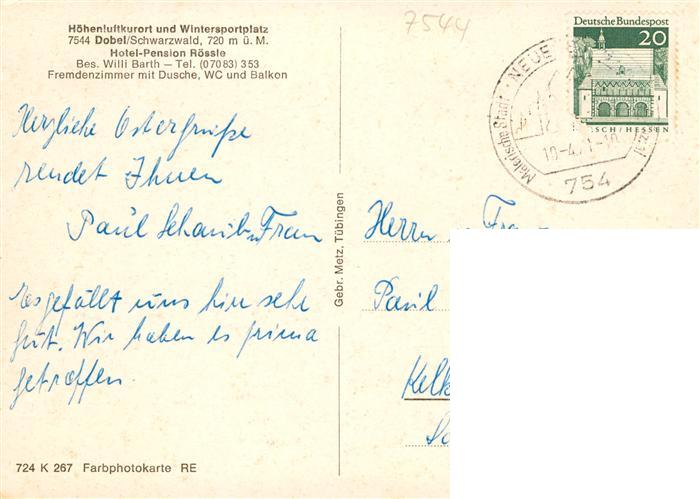 Höhenluftkurort und Wintersportplatz
7544 Dobel/Schwarzwald, 720 m ü. M.
Hotel-Pension Rössle
Bes. Willi Barth — Tel. (07083) 353
Fremdenzimmer mit Dusche, WC und Balkon
Herzliche Ostergrüße
sendet Ihnen
Paul u. Frau
Es gefällt uns hier sehr
gut. Wir haben es prima
getroffen.
724 K 267 Farbphotokarte RE
Gebr. Metz, Tübingen
7544
Deutsche Bundespost
20
SCH/HESSEN
NEUE
Malerische Stadt
754
Herrn u. Frau
Paul
Kelk